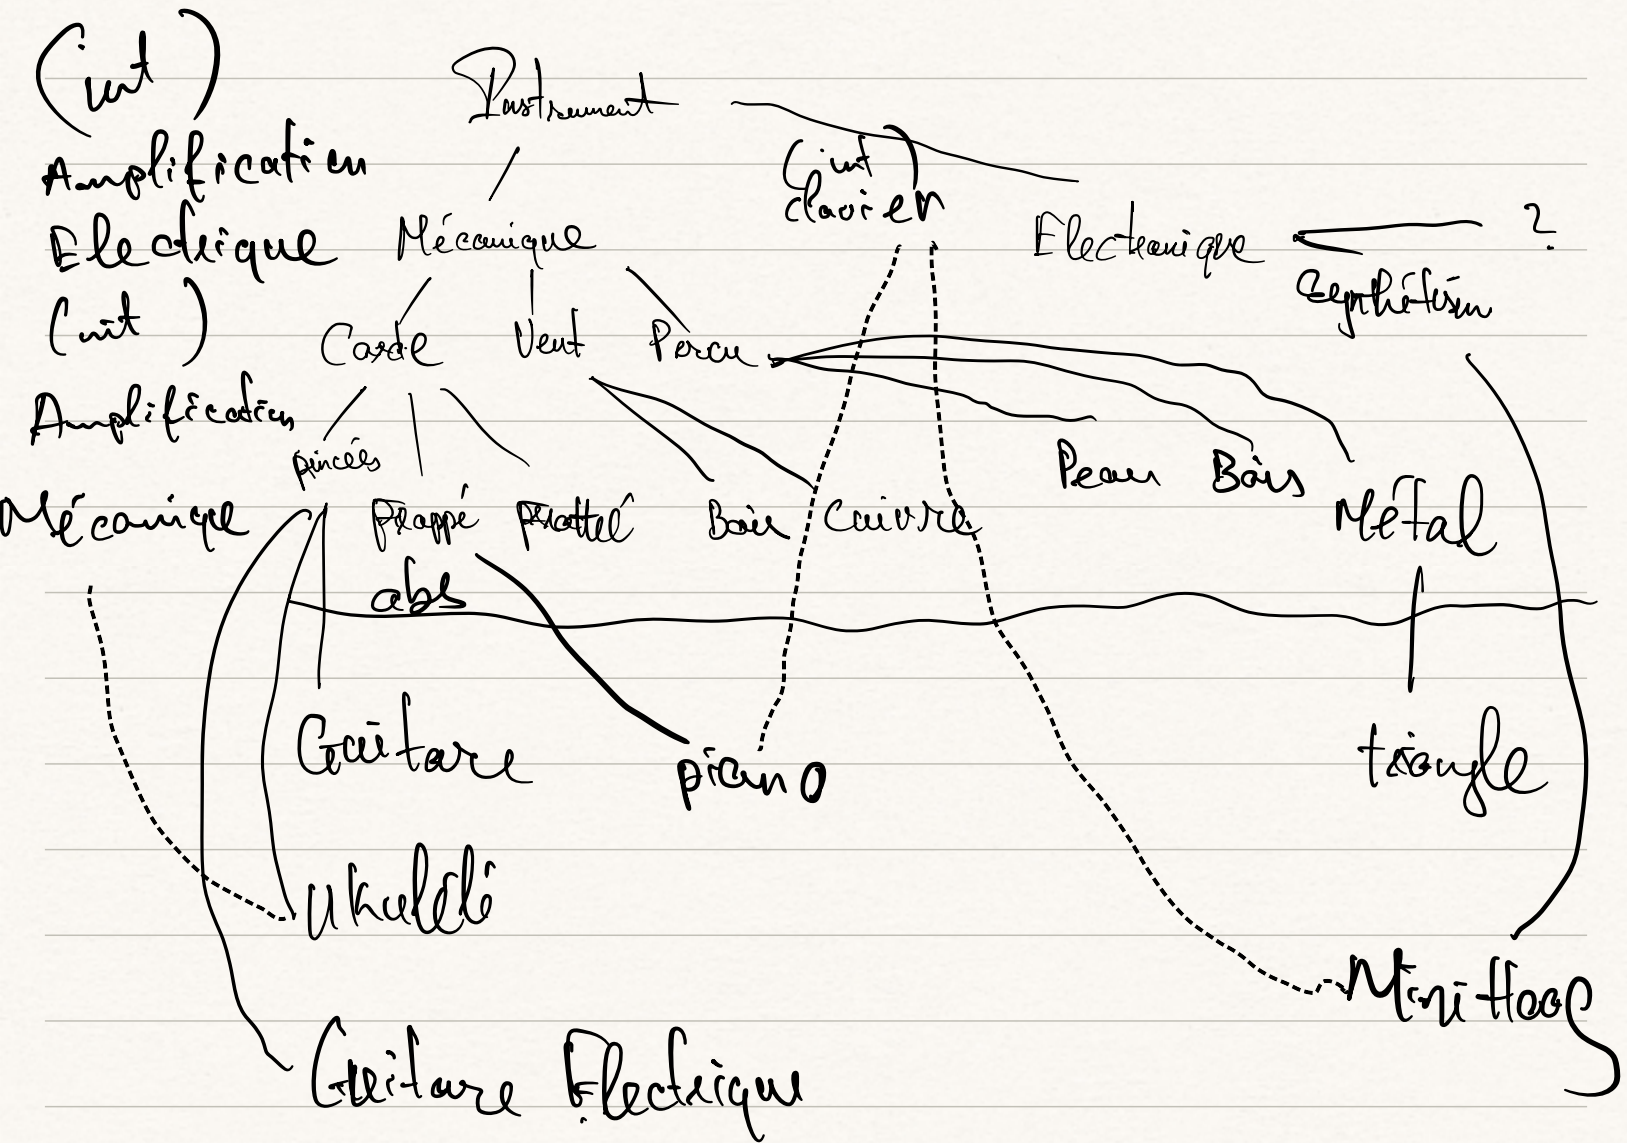 (int)
Amplification
Electrique
(int)
Amplification
Mécanique
Instrument
Mécanique
(int)
clavier
Electronique
?
Corde Vent Percu
pincées Frappé Frotté
Bois Cuivre
Peau Bois Métal
abs
Guitare piano triangle
Ukulélé
MiniHoog
Guitare Electrique